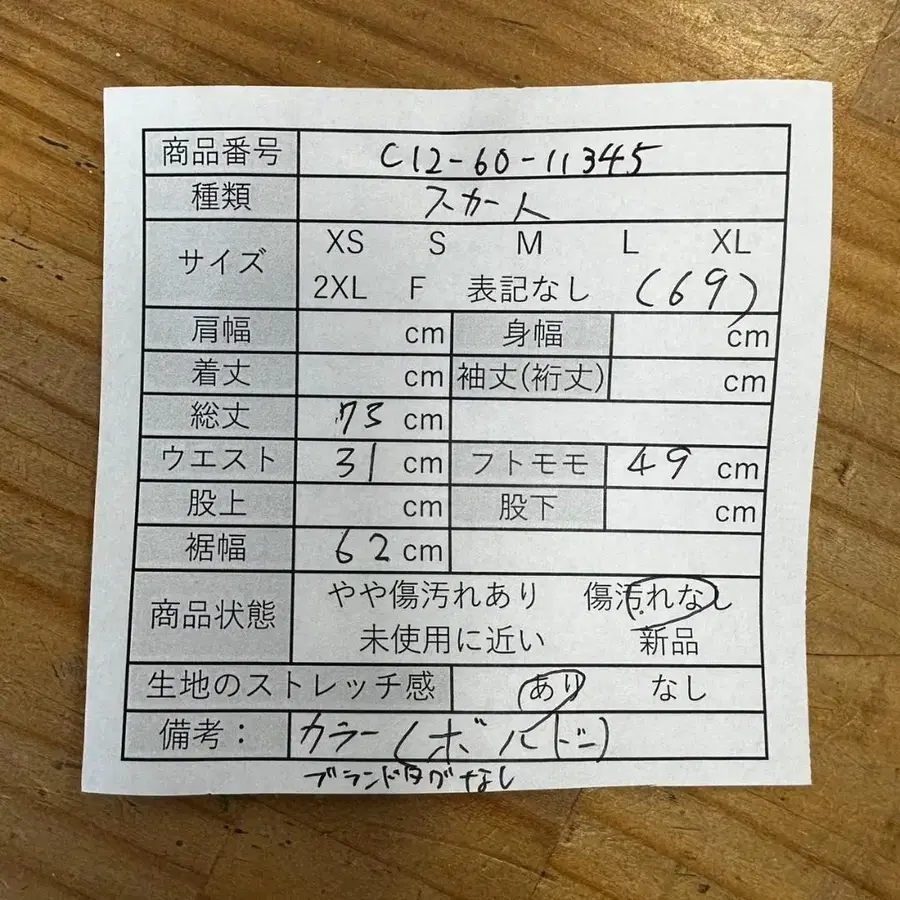 商品番号 C12-60-11345
種類 スカート
サイズ XS S M L XL
2XL F 表記なし (69)
肩幅 cm 身幅 cm
着丈 cm 袖丈(裄丈) cm
総丈 73 cm
ウエスト 31 cm フトモモ 49 cm
股上 cm 股下 cm
裾幅 62 cm
商品状態 やや傷汚れあり 傷汚れなし
未使用に近い 新品
生地のストレッチ感 あり なし
備考: カラー(ボルドー)
ブランドタグなし